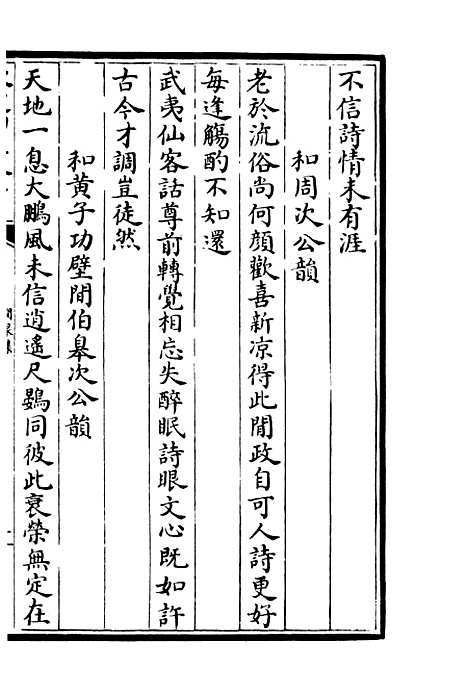 不信詩情未有涯
和周次公韻
老於流俗尚何顔歡喜新凉得此閒政自可人詩更好
每逢觴酌不知還
武夷仙客話尊前轉覺相忘失醉眠詩眼文心既如許
古今才調豈徒然
和黄子功壁間伯臯次公韻
天地一息大鵬風未信逍遙尺鷃同彼此衰榮無定在